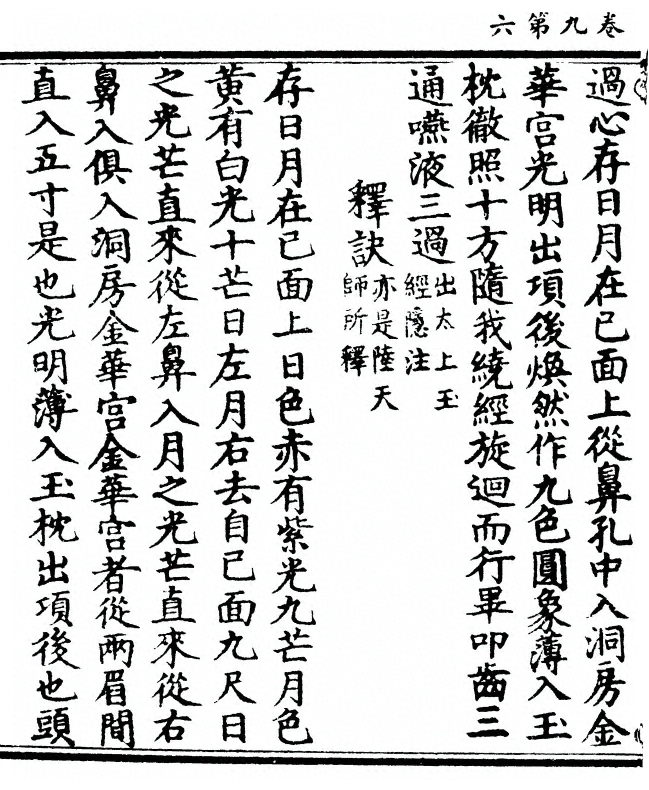 卷九第六
過心存日月在己面上從鼻孔中入洞房金
華宮光明出項後煥然作九色圓象薄入玉
枕徹照十方隨我繞經旋迴而行畢叩齒三
通嚥液三過出太上玉
經隱注
釋訣亦是陸天
師所釋
存日月在己面上日色赤有紫光九芒月色
黃有白光十芒日左月右去自己面九尺日
之光芒直來從左鼻入月之光芒直來從右
鼻入俱入洞房金華宮金華宮者從兩眉間
直入五寸是也光明薄入玉枕出項後也頭